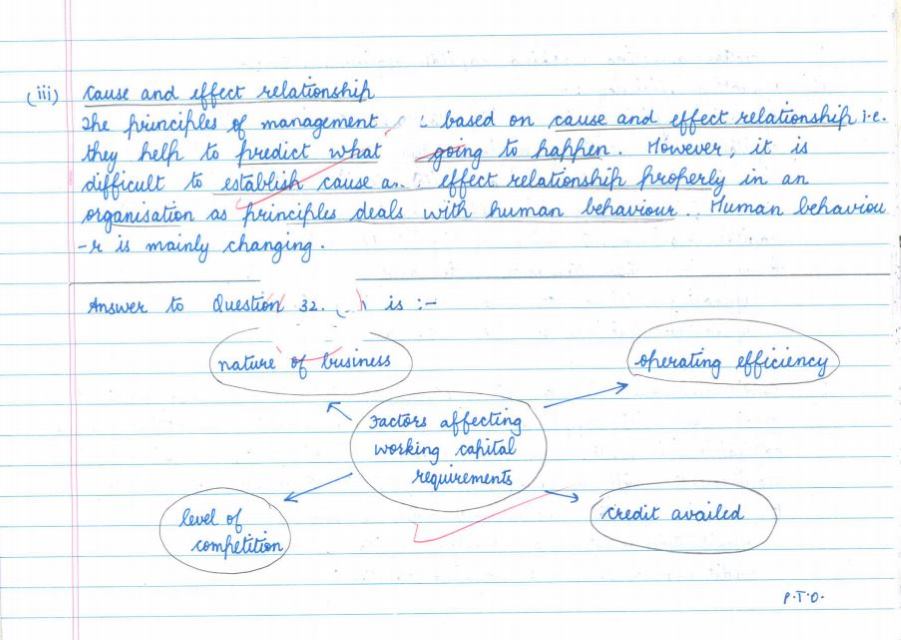 (iii) Cause and effect relationship
The principles of management based on cause and effect relationship i.e.
they help to predict what going to happen. However, it is
difficult to establish cause an effect relationship properly in an
organisation as principles deals with human behaviour. Human behaviou
-r is mainly changing.
Answer to Question 32. is :-
nature of business
operating efficiency
Factors affecting
working capital
requirements
level of
competition
credit availed
P.T.O.